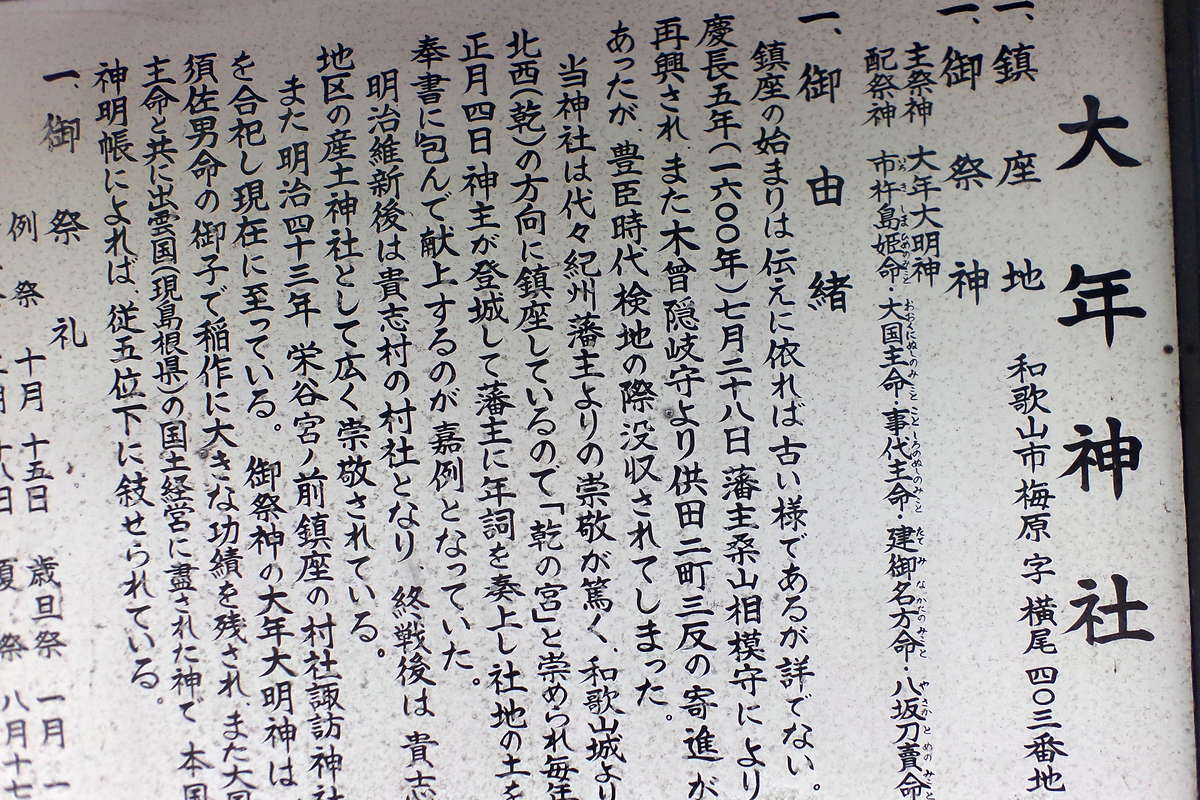 大年神社
一、鎮座地 和歌山市梅原字横尾四〇三番地
一、御祭神
主祭神 大年大明神
配祭神 市杵島姫命・大国主命・事代主命・建御名方命・八坂刀賣命
一、御由緒
鎮座の始まりは伝えに依れば古い様であるが詳でない。
慶長五年(一六〇〇年)七月二十八日藩主桑山相模守により
再興され、また木曾隠岐守より供田二町三反の寄進が
あったが、豊臣時代検地の際没収されてしまった。
当神社は代々紀州藩主よりの崇敬が篤く、和歌山城より
北西(乾)の方向に鎮座しているので「乾の宮」と崇められ毎年
正月四日神主が登城して藩主に年詞を奏上し社地の土を
奉書に包んで献上するのが嘉例となっていた。
明治維新後は貴志村の村社となり、終戦後は貴志
地区の産土神社として広く崇敬されている。
また明治四十三年 栄谷宮ノ前鎮座の村社諏訪神社
を合祀し現在に至っている。 御祭神の大年大明神は
須佐男命の御子で稲作に大きな功績を残され、また大国
主命と共に出雲国(現島根県)の国土経営に盡された神で 本国
神明帳によれば、従五位下に敍せられている。
一、御祭礼
例祭 十月十五日 歳旦祭 一月一
月十八日 夏祭 八月十七